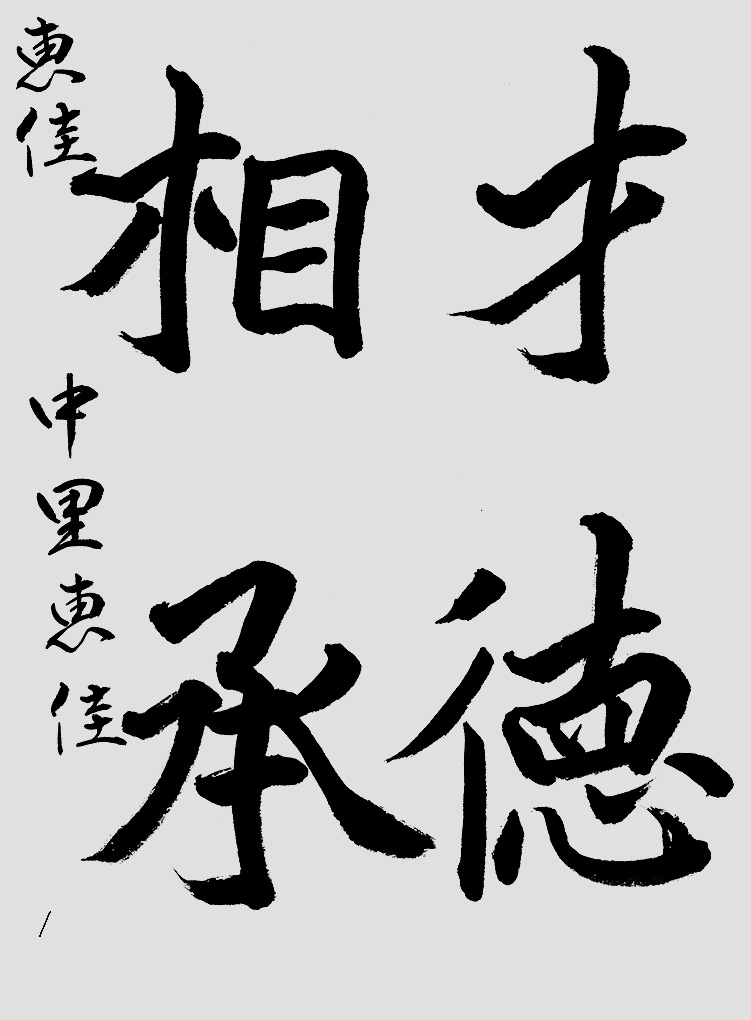 才徳
相承
恵佳
中里恵佳